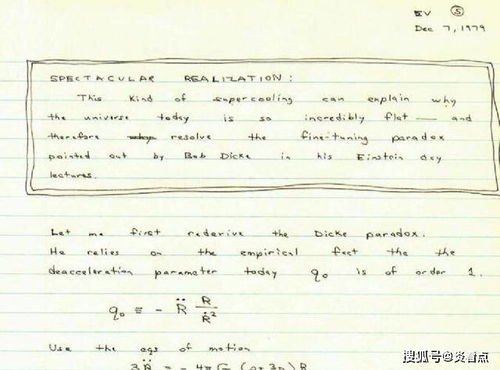 EV ⑤
Dec 7, 1979
SPECTACULAR REALIZATION:
This kind of supercooling can explain why
the universe today is so incredibly flat — and
therefore resolve the fine-tuning paradox
pointed out by Bob Dicke in his Einstein day
lectures.
Let me first rederive the Dicke paradox.
He relies on the empirical fact the the
deacceleration parameter today q₀ is of order 1.
q₀ ≡ - R̈ R/Ṙ²
Use the eqs of motion
3R̈ = - 4πG (ρ+3p) R
搜狐号@炎看点